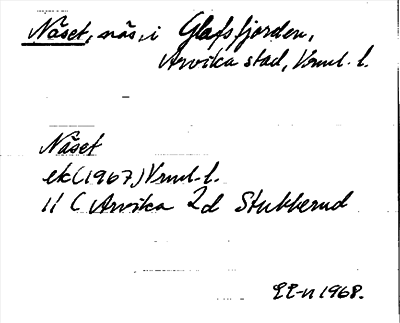 Näset, näs, i Glafsfjorden,
Arvika stad, Vrml. l.
Näset
ek (1967) Vrml. l.
11 C Arvika 2d Stubberud
1968.